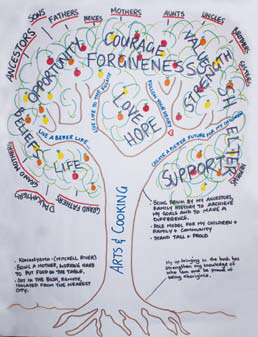 ANCESTORS
SONS
FATHERS
NEICES
MOTHERS
AUNTS
UNCLES
BROTHERS
SISTERS
NEPHEWS
COURAGE
FORGIVENESS
OPPORTUNITY
VALUES
STRENGTH
SHELTER
BELIEFS
LOVE
HOPE
LIFE
SUPPORT
LIVE LIFE TO THE FULLEST
FOLLOW YOUR DREAMS
LIVE A BETTER LIFE
CREATE A BETTER FUTURE FOR MY CHILDREN
GRAND MOTHERS
DAUGHTERS
GRAND FATHERS
ARTS & COOKING
• KOWANYAMA - (MITCHELL RIVER)
BEING A MOTHER, WORKING HARD
TO PUT FOOD IN THE TABLE.
• OUT IN THE BUSH, REMOTE,
ISOLATED FROM THE NEAREST
CITY.
• BEING DRIVEN BY MY ANCESTORS,
FAMILY HISTORY TO ACHIEVE
MY GOALS AND TO MAKE A
DIFFERENCE.
• ROLE MODEL FOR MY CHILDREN &
FAMILY & COMMUNITY
• STAND TALL & PROUD
My up bringing in the bush has
strengthen my knowledge of
who I am and be proud of
being Aboriginal.